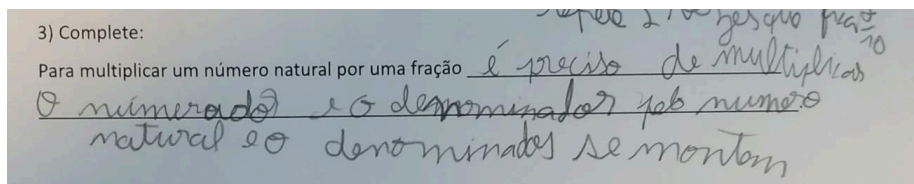 repete 2 10 vezes que fração 7/10
3) Complete:
Para multiplicar um número natural por uma fração é preciso de multiplicar
O númerador e o denominador pelo numero
natural e o denominador se montem